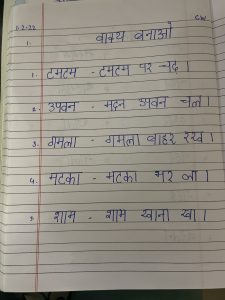 1.2.22 CW
1. वाक्य बनाओ
1. टमटम - टमटम पर चढ़।
2. उपवन - मदन उपवन चल।
3. गमला - गमला बाहर रख।
4. मटका - मटका भर ला।
5. शाम - शाम खाना खा।